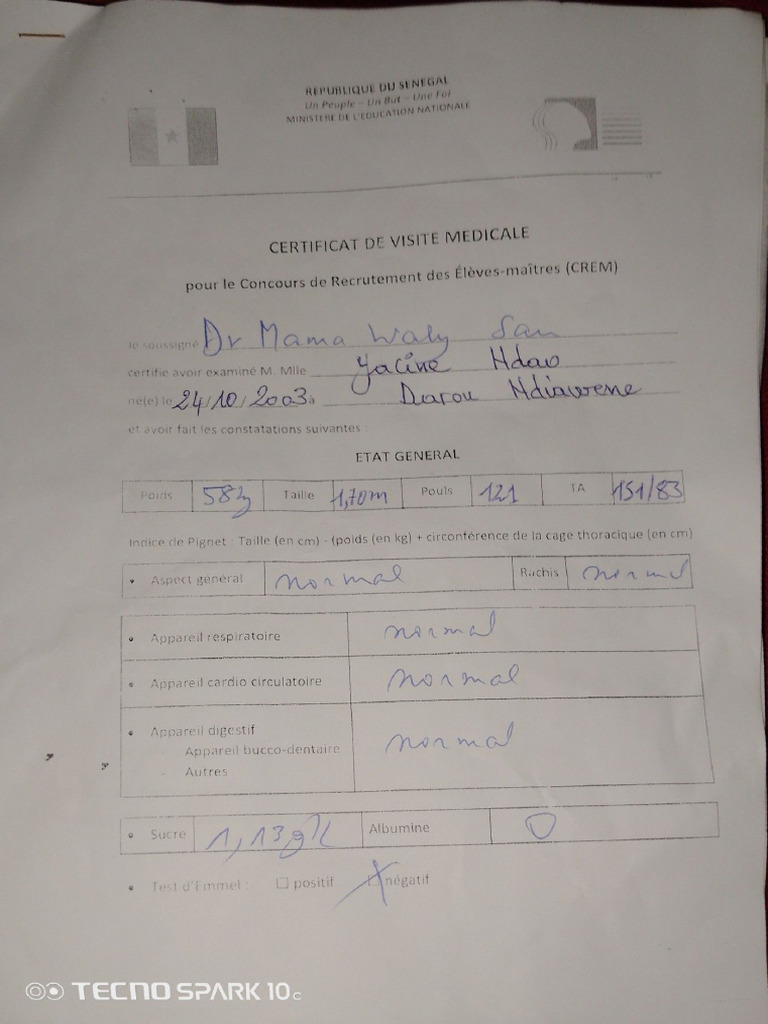 REPUBLIQUE DU SENEGAL
Un Peuple – Un But – Une Foi
MINISTERE DE L'EDUCATION NATIONALE
CERTIFICAT DE VISITE MEDICALE
pour le Concours de Recrutement des Élèves-maîtres (CREM)
Je soussigné Dr Mama Waly San
certifie avoir examiné M. Mlle Yacine Ndao
né(e) le 24/10/2003 à Darou Ndiawene
et avoir fait les constatations suivantes :
ETAT GENERAL
Poids 58kg Taille 1,70m Pouls 121 TA 151/83
Indice de Pignet : Taille (en cm) - (poids (en kg) + circonférence de la cage thoracique (en cm)
• Aspect général normal Rachis normal
• Appareil respiratoire normal
• Appareil cardio circulatoire normal
• Appareil digestif normal
- Appareil bucco-dentaire
- Autres
• Sucre 1,13g/L Albumine 0
• Test d'Emmel : □ positif □ négatif
TECNO SPARK 10C